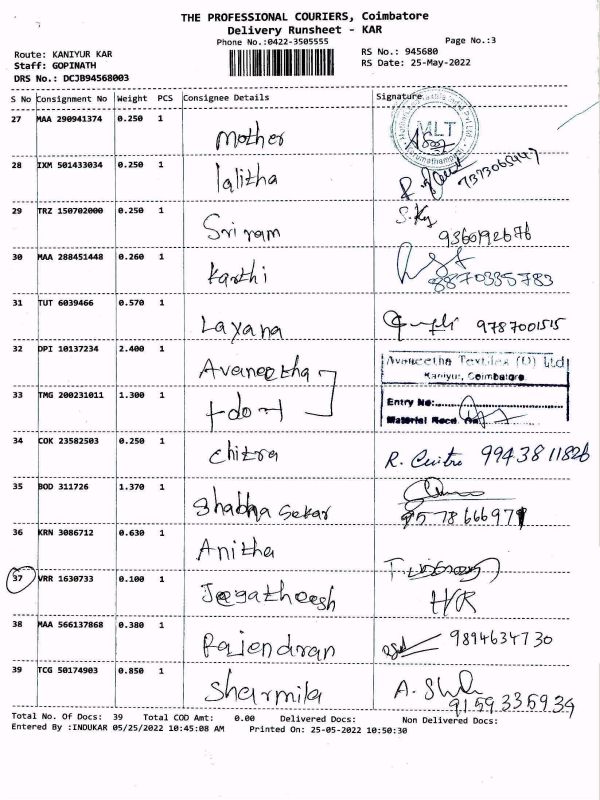 THE PROFESSIONAL COURIERS, Coimbatore
Delivery Runsheet - KAR
Phone No.:0422-3505555
Page No.:3
Route: KANIYUR KAR
RS No.: 945680
Staff: GOPINATH
RS Date: 25-May-2022
DRS No.: DCJB94568003
S No Consignment No Weight PCS Consignee Details Signature
27 MAA 290941374 0.250 1 Mother
MLT
28 IXM 501433034 0.250 1 lalitha
29 TRZ 150702000 0.250 1 Sriram
9360192676
30 MAA 288451448 0.260 1 Karthi
8870335783
31 TUT 6039466 0.570 1 Layana 9787001515
32 DPI 10137234 2.400 1 Avaneetha
Avaneetha Textiles (P) Ltd
Kaniyur, Coimbatore
33 TMG 200231011 1.300 1
Entry No:
Material Recd.
34 COK 23582503 0.250 1 Chitra R. 9943811826
35 BOD 311726 1.370 1 Shabha Sekar
36 KRN 3086712 0.630 1 Anitha
37 VRR 1630733 0.100 1 Jeegatheesh H/R
38 MAA 566137868 0.380 1 Rajendran 9894634730
39 TCG 50174903 0.850 1 Sharmila
9159335939
Total No. Of Docs: 39 Total COD Amt: 0.00 Delivered Docs: Non Delivered Docs:
Entered By :INDUKAR 05/25/2022 10:45:08 AM Printed On: 25-05-2022 10:50:30